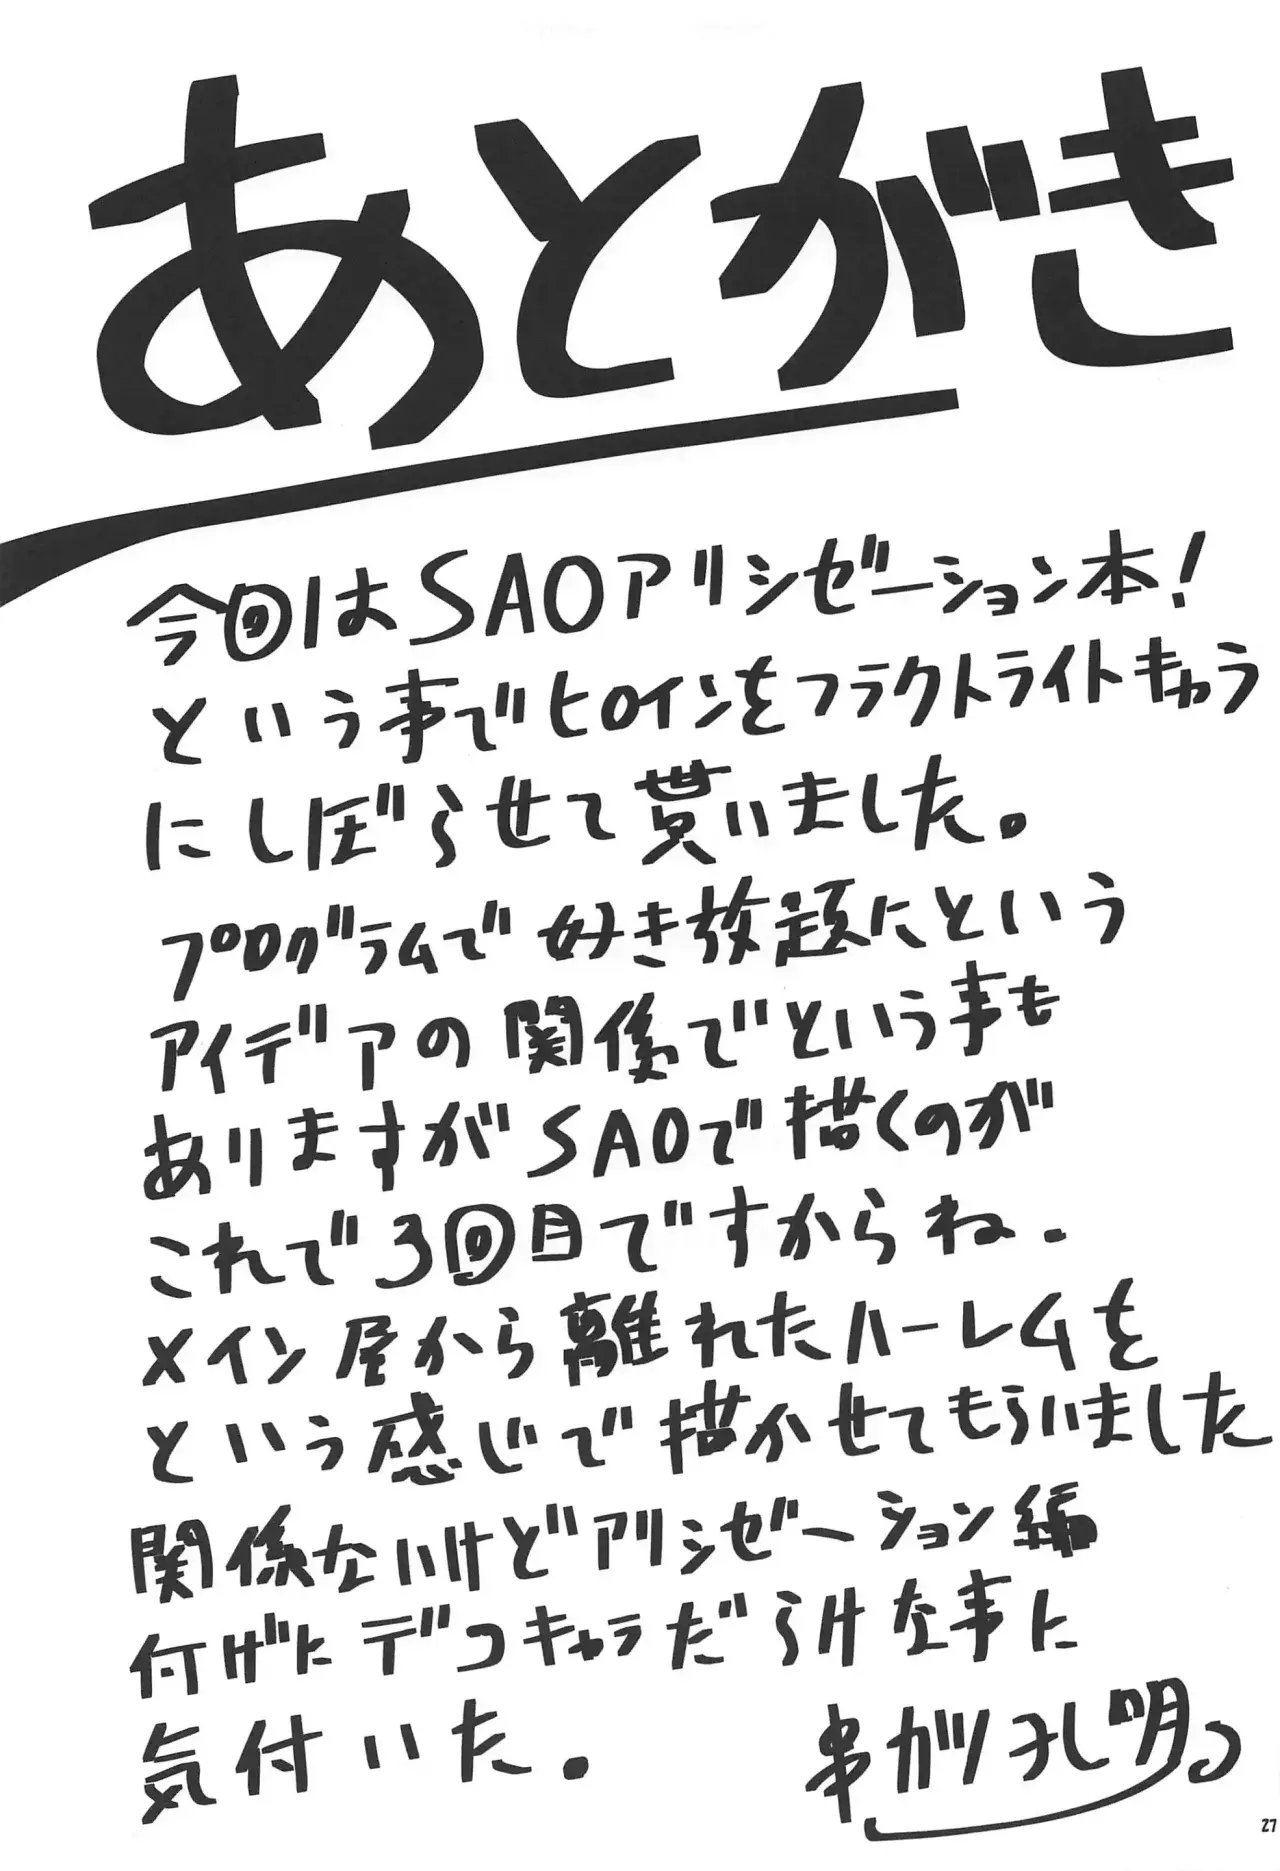 あとがき
今回はSAOアリシゼーション本!
という事でヒロインをフラクトライトキャラ
にしぼらせて貰いました。
プログラムで好き放題にという
アイデアの関係でという事も
ありますがSAOで描くのが
これで3回目ですからね.
メイン屋から離れたハーレムを
という感じで描かせてもらいました
関係ないけどアリシゼーション編
付げにデコキャラだらけな事に
気付いた。
串ガツ孔明
27